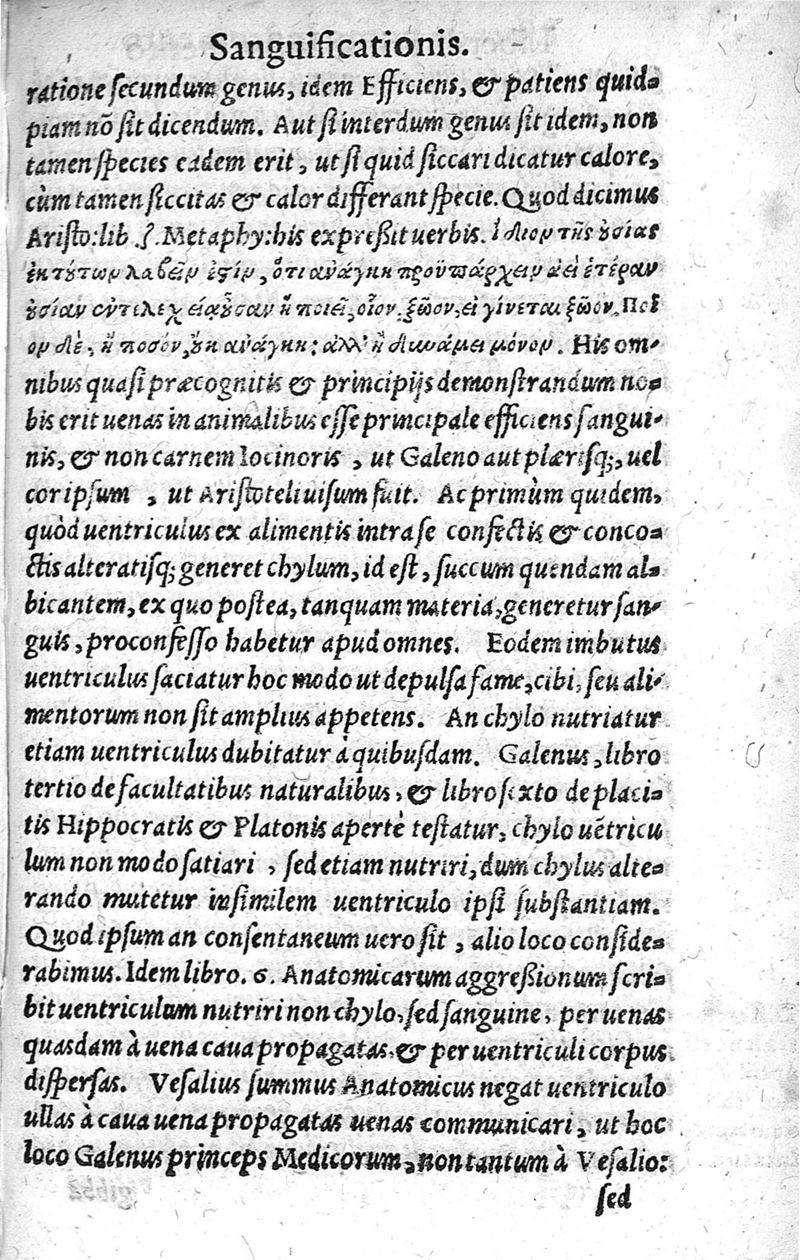 Sanguificationis.
ratione ſecundum genus, idem Efficiens, & patiens quid-
piam nõ ſit dicendum. Aut ſi interdum genus ſit idem, non
tamen ſpecies eadem erit, ut ſi quid ſiccari dicatur calore,
cùm tamen ſiccitas & calor differant ſpecie. Quod dicimus
Ariſto: lib. ζ. Metaphy: his expreßit uerbis. ἴδιον τῆς ȣσίας
ἐκ τȣ́των λαβεῖν ἐςίν, ὅτι ἀνάγκη προϋπάρχειν ἀεὶ ἑτέραν
ȣσίαν ἐντελεχείᾳ ȣ̓σαν ἣ ποιεῖ, οἷον, ζῶον, εἰ γίνεται ζῶον, Ποῖ
ον δὲ, ἢ ποσὸν, ȣ̓κ ἀνάγκη: ἀλλ' ἢ δυνάμει μόνον. His om-
nibus quaſi præcognitis & principijs demonſtrandum no-
bis erit uenas in animalibus eſſe principale efficiens ſangui-
nis, & non carnem Iocinoris, ut Galeno aut plæriſq;, uel
cor ipſum, ut Ariſtoteli uiſum fuit. Ac primùm quidem,
quòd uentriculus ex alimentis intra ſe confectis & conco-
ctis alteratiſq; generet chylum, id eſt, ſuccum quendam al-
bicantem, ex quo poſtea, tanquam materia, generetur ſan-
guis, pro confeſſo habetur apud omnes. Eodem imbutus
uentriculus ſaciatur hoc modo ut depulſa fame, cibi, ſeu ali-
mentorum non ſit amplius appetens. An chylo nutriatur
etiam uentriculus dubitatur à quibuſdam. Galenus, libro
tertio de facultatibus naturalibus, & libro ſexto de placi-
tis Hippocratis & Platonis apertè teſtatur, chylo uẽtricu
lum non modo ſatiari, ſed etiam nutriri, dum chylus alte-
rando mutetur in ſimilem uentriculo ipſi ſubſtantiam.
Quod ipſum an conſentaneum uero ſit, alio loco conſide-
rabimus. Idem libro. 6. Anatomicarum aggreßionum ſcri-
bit uentriculum nutriri non chylo, ſed ſanguine, per uenas
quasdam à uena caua propagatas & per uentriculi corpus
diſperſas. Veſalius ſummus Anatomicus negat uentriculo
ullas à caua uena propagatas uenas communicari, ut hoc
loco Galenus princeps Medicorum, non tantum à Veſalio:
ſed